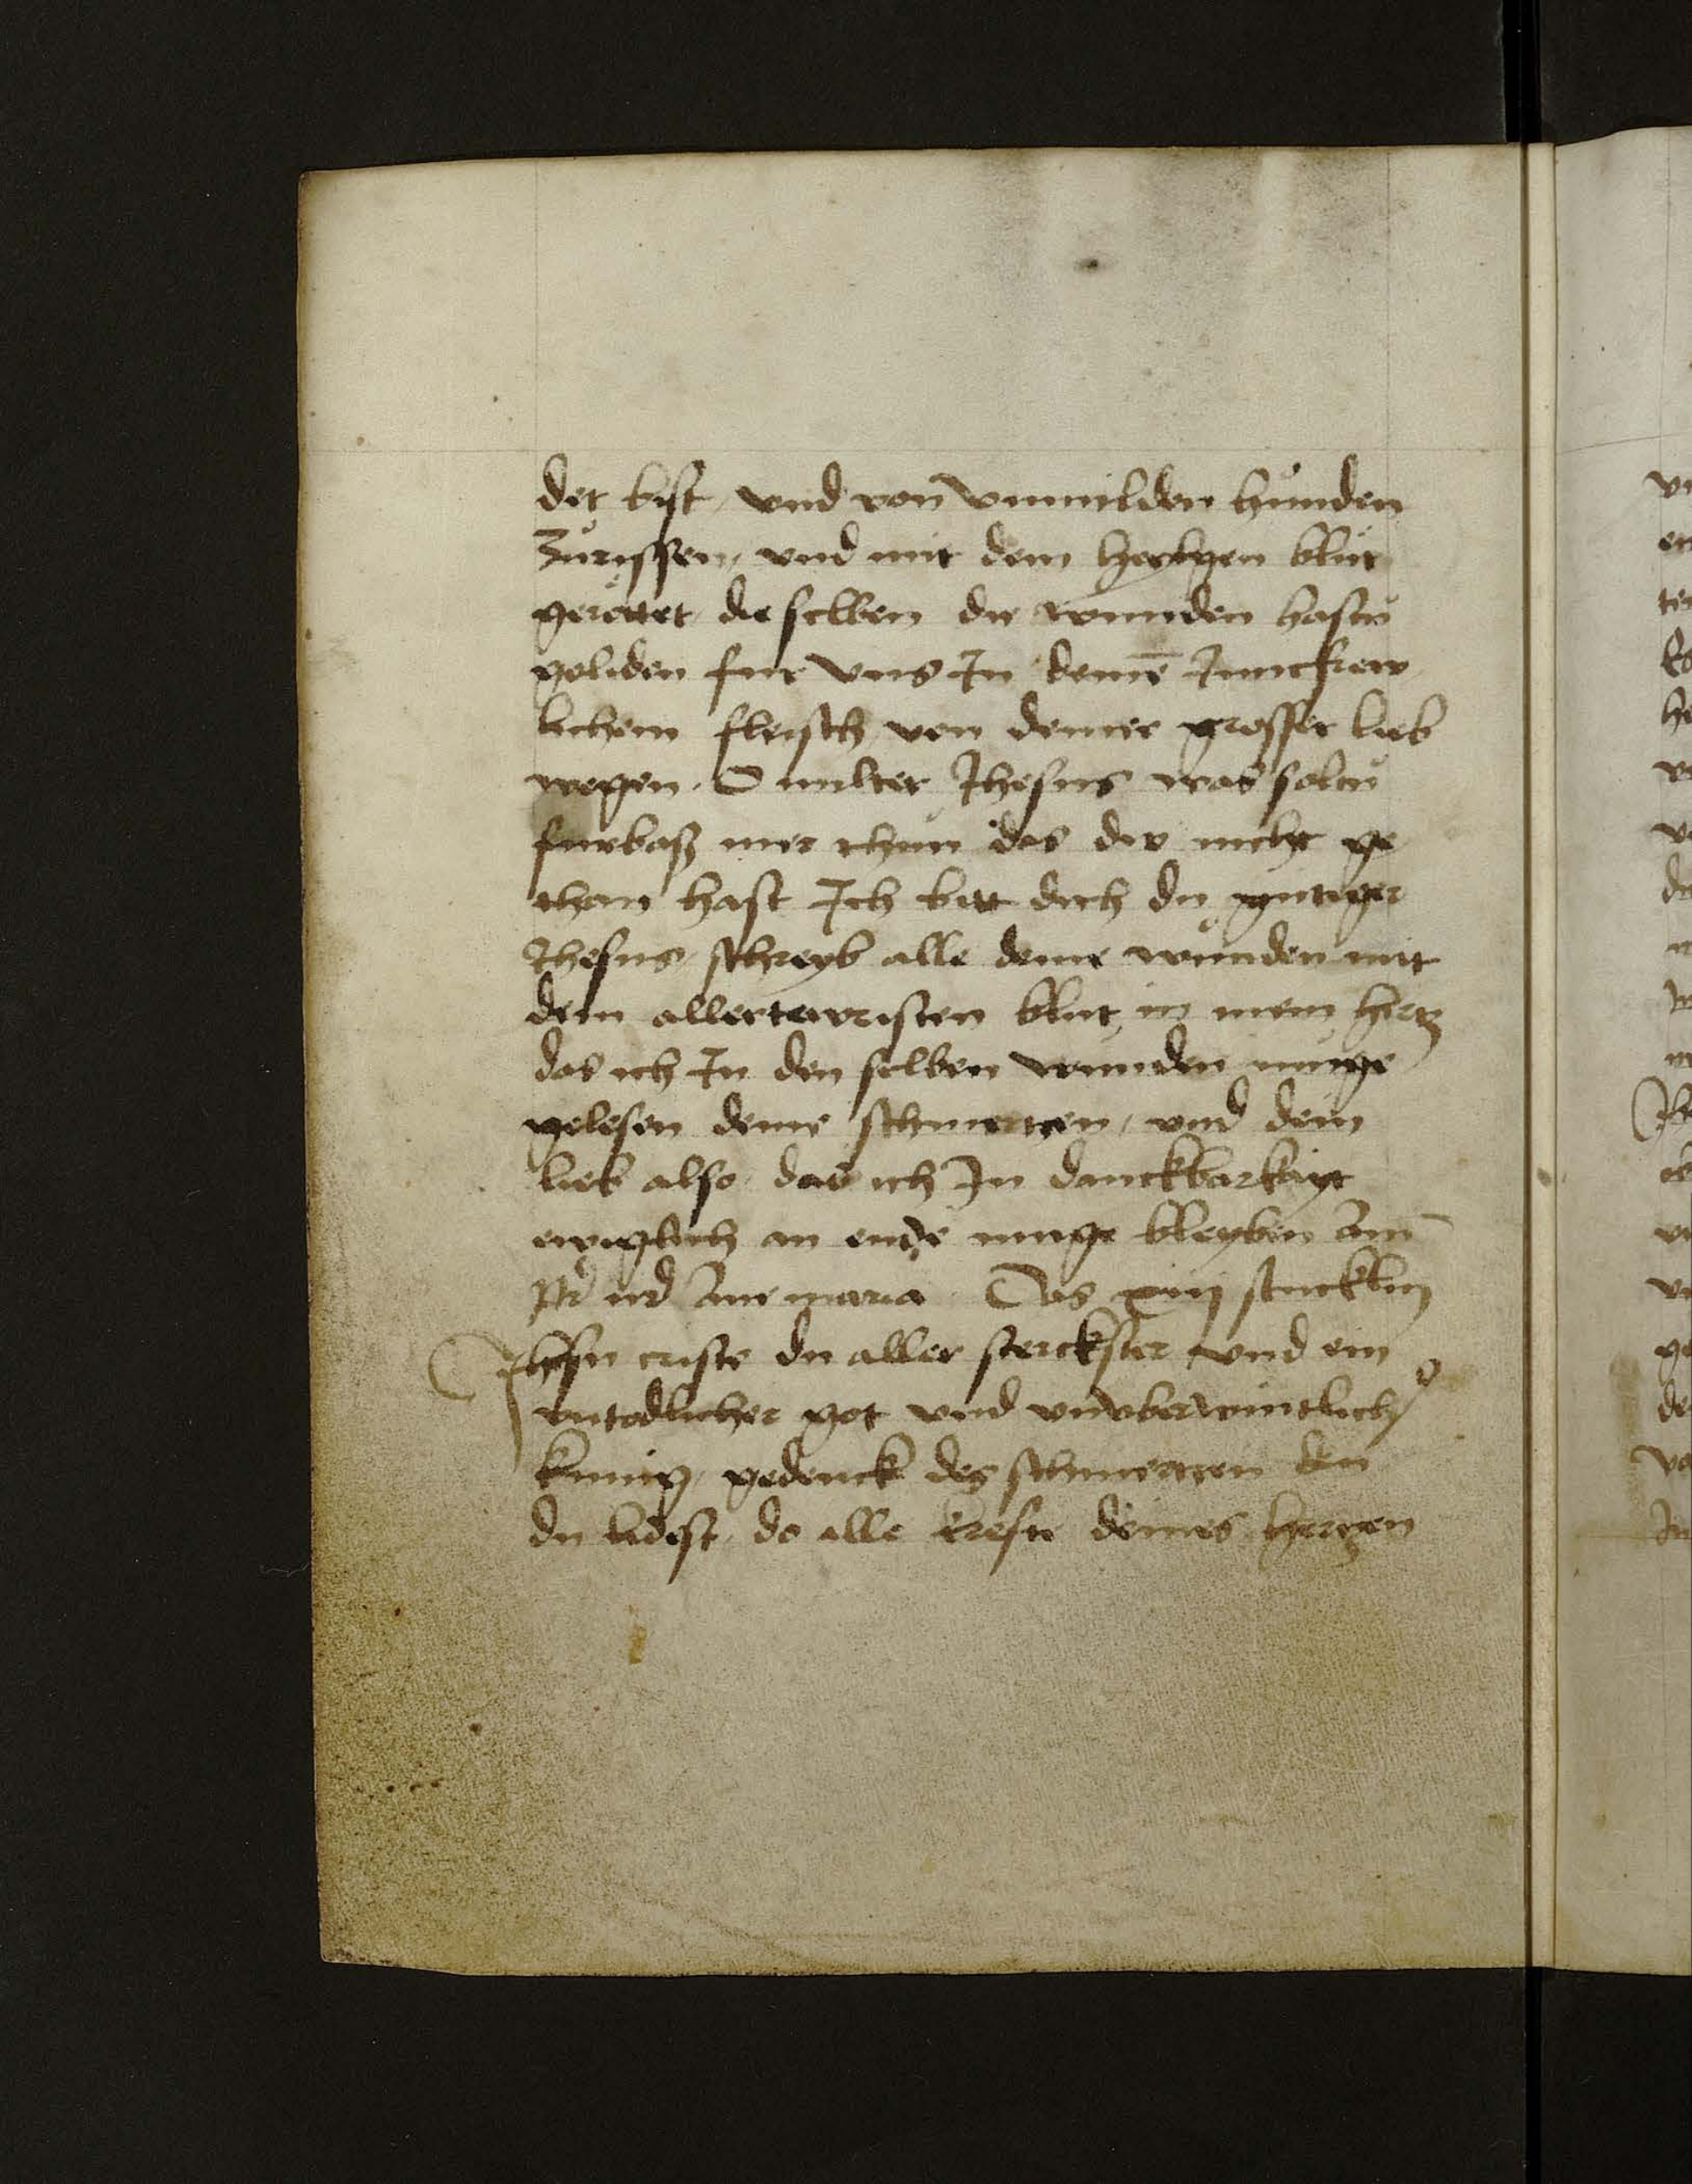 det bist / vnd von vnmilden hůnden
Zůrissen / vnd mit dem heylgen blůt
gerottet die selben die wunden hastů
geliden fur vns In deinē Junckfrew
lichem fleisch von deiner grosser lieb
wegen. O milter Jhesus was soltů
furbaß mer thůn das du nicht ge
than hast Ich bitt dich du gůtiger
Jhesus / schreyb alle deine wůnden mit
dem allertewristen blut in mein hertz
das ich In den selben wunden muge
gelesen deine schmertzen / vnd dein
lieb also das ich In danckbarkayt
ewiglich an ende muge bleyben Am̄
Pr̄ nr̄ Aue maria Das xiiij stucklin
Jhesu criste du aller sterckster vnd ein
vntodlicher got vnd vnvberwintlich
kunig / gedenck des schmertzen den
du lidest / do alle krefte deines hertzen